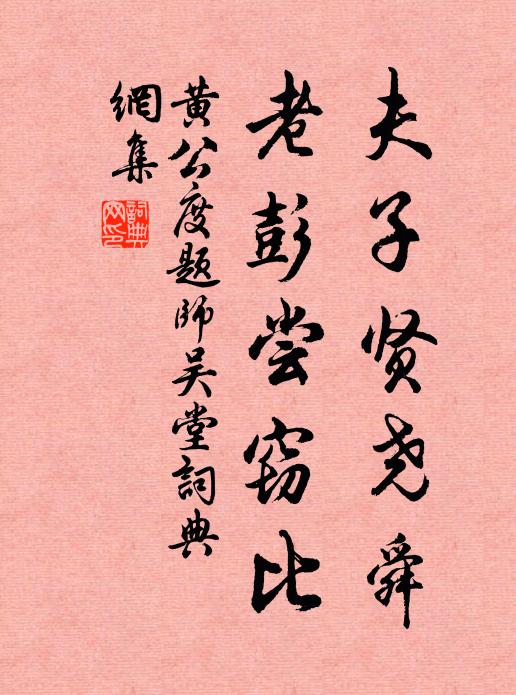 夫子贤尧舜
老彭尝窃比
黄公度题师吴堂詞典
網集
詞典网印